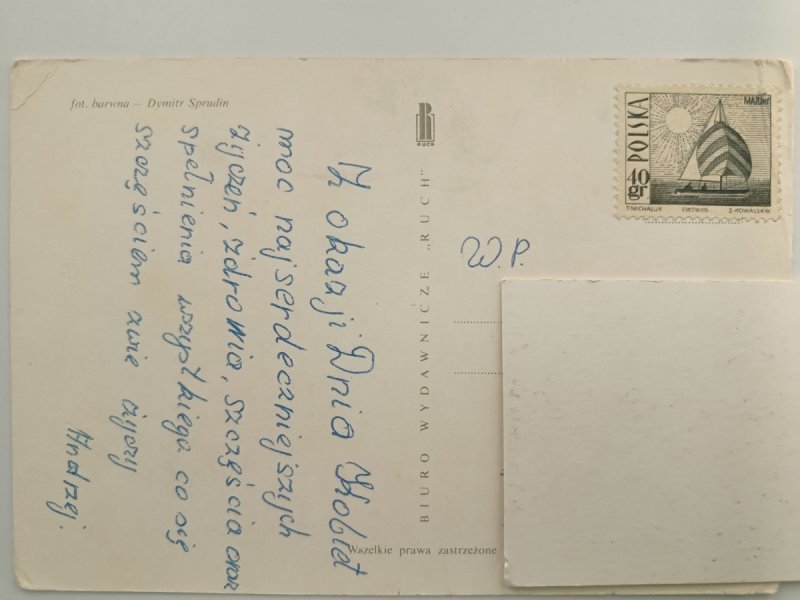 fot. barwna — Dymitr Sprudin
Z okazji Dnia Kobiet
moc najserdeczniejszych
życzeń, zdrowia, szczęścia oraz
spełnienia wszystkiego co się
szczęściem zwie życzy
Andrzej.
BIURO WYDAWNICZE „RUCH”
RUCH
Wszelkie prawa zastrzeżone
W.P.
POLSKA
40 gr
T.MICHALUK
Z.KOWALSKI